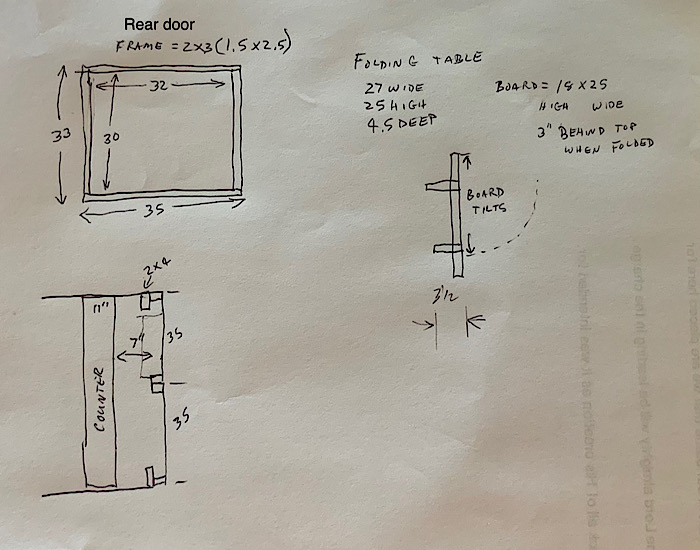 Rear door
FRAME = 2x3 (1.5 x 2.5)
32
33
30
35
FOLDING TABLE
27 WIDE
25 HIGH
4.5 DEEP
BOARD = 18 x 25
HIGH WIDE
3" BEHIND TOP
WHEN FOLDED
BOARD
TILTS
3 1/2
2x4
11"
7"
35
COUNTER
35